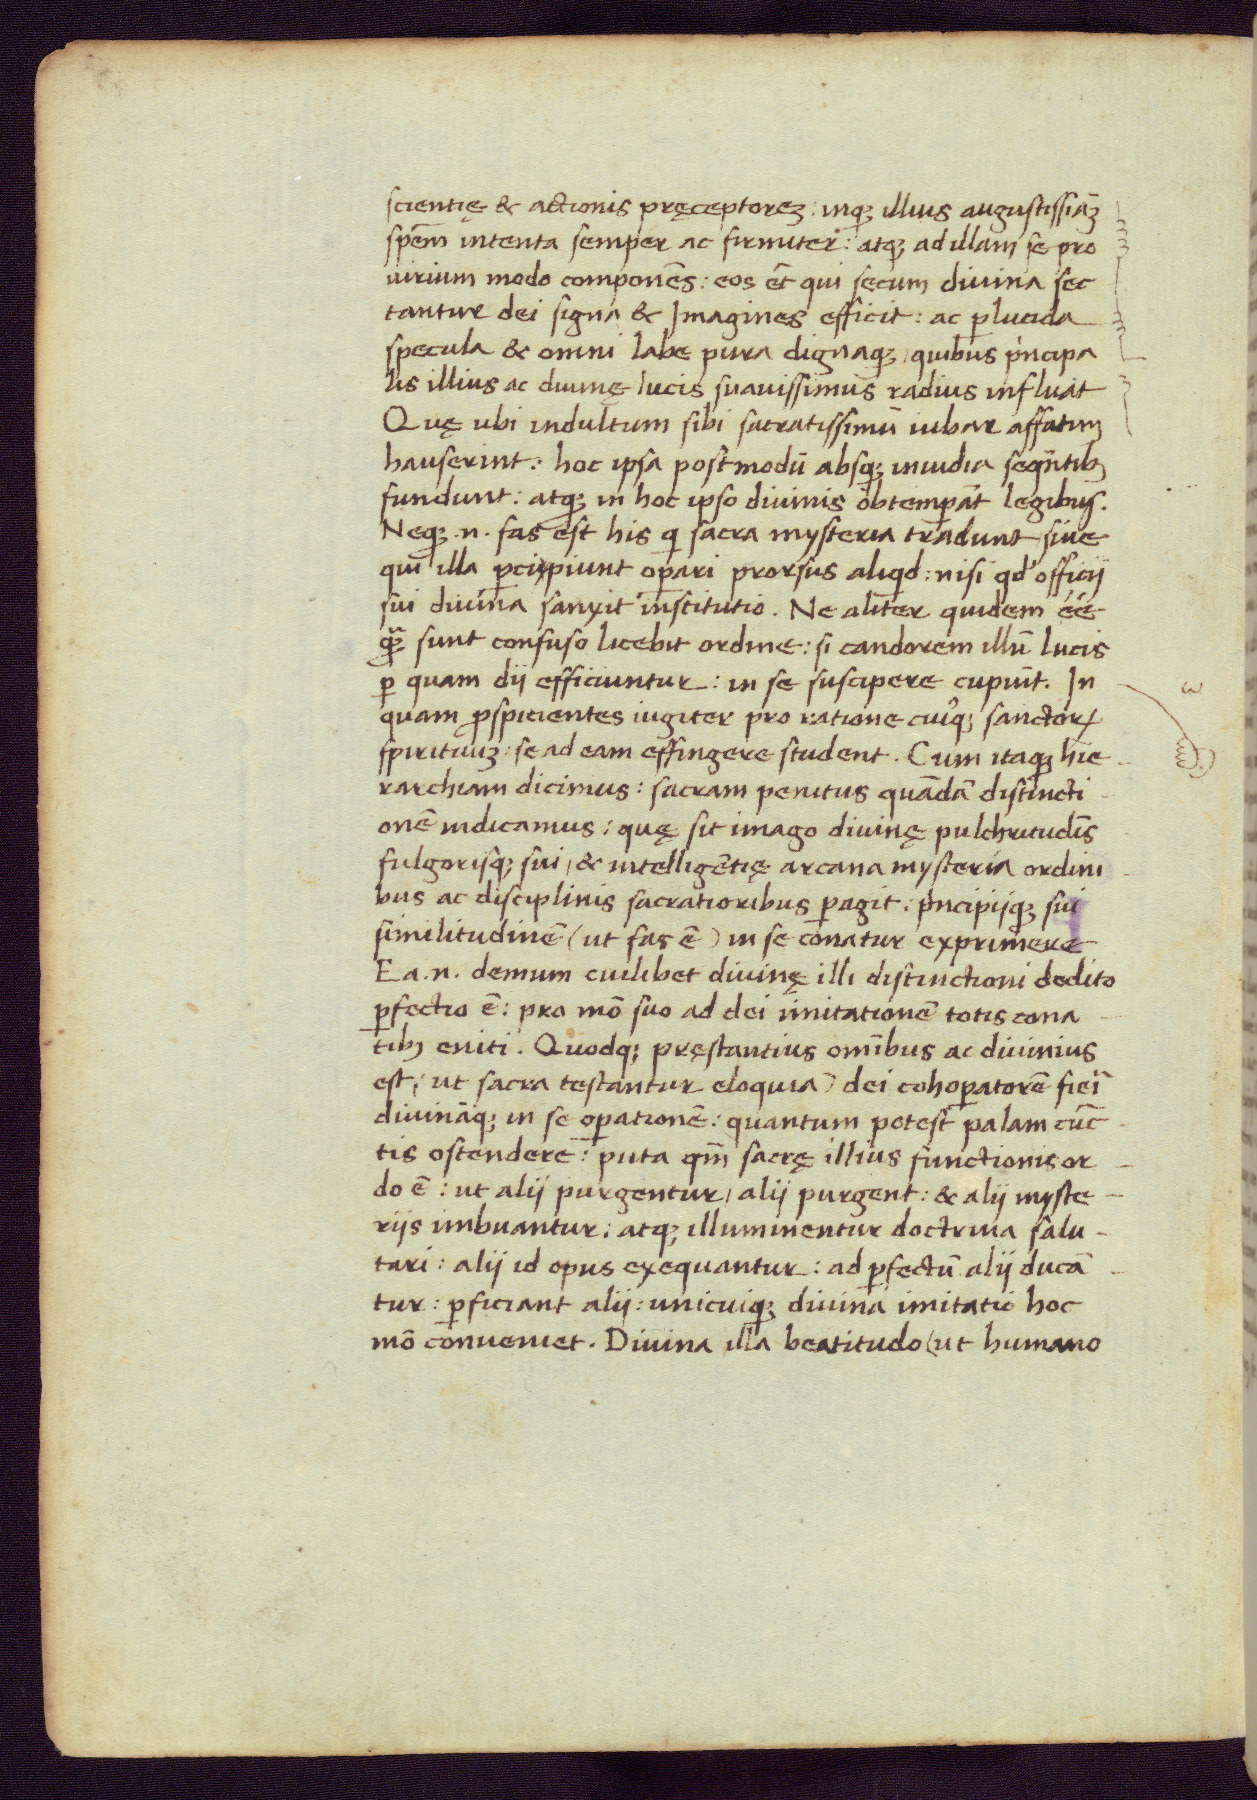 scientię & actionis pręceptoreʒ: inqꝫ illius augustissiāʒ
spēm intenta semper ac firmiter: atqꝫ ad illam se pro
uirium modo componēs: eos ēt qui secum diuina sec
tantur dei signa & Imagines efficit: ac ꝑlucida
specula & omni labe pura dignaqꝫ, quibus pͥncipa
lis illius ac diuinę lucis suauissimus radius influat
Quę ubi indultum sibi sacratissimū iubar affatim
hauserint: hoc ipsa postmodū absqꝫ inuidia seqn̄tibꝫ
fundunt: atqꝫ in hoc ipso diuinis obtemꝑāt legibus.
Neqꝫ .n. fas est his qͥ sacra mysteria tradunt siue
qui illa ꝑcipiunt oꝑari prorsus aliqͥd: nisi qd' officij
sui diuina sanxit institutio. Ne alīter quidem éé
qꝫ̄ sunt confuso licebit ordine: si candorem illū lucis
ꝑ quam dij efficiuntur: in se suscipere cupiūt. In
quam ꝓspicientes iugiter pro ratione cuiꝰqꝫ sanctoꝝ
spirituuʒ: se ad eam effingere student. Cum itaqꝫ hie
rarchiam dicimus: sacram penitus quādā distincti
onē indicamus: quę sit imago diuinę pulchritudīs
fulgorisqꝫ sui, & intelligētię arcana mysteria ordini
bus ac disciplinis sacratioribus ꝑagit: pͥncipijqꝫ sui
similitudinē (ut fas ē) in se conatur exprimere
Ea .n. demum cuilibet diuinę illi distinctioni dedito
ꝑfectio ē: pro mō suo ad dei imitationē totis cona
tibꝫ eniti. Quodqꝫ pręstantius omībus ac diuinius
est, (ut sacra testantur eloquia) dei cohoꝑatorē fieri
diuināqꝫ in se oꝑationē: quantum potest palam cūc
tis ostendere: puta qm̄ sacrę illius functionis or
do ē: ut alij purgentur, alij purgent: & alij myste
rijs imbuantur: atqꝫ illuminentur doctrina salu
tari: alij id opus exequantur: ad ꝑfectū alij ducā
tur: ꝑficiant alij: unicuiqꝫ diuina imitatio hoc
mō conueniet. Diuina illa beatitudo (ut humano